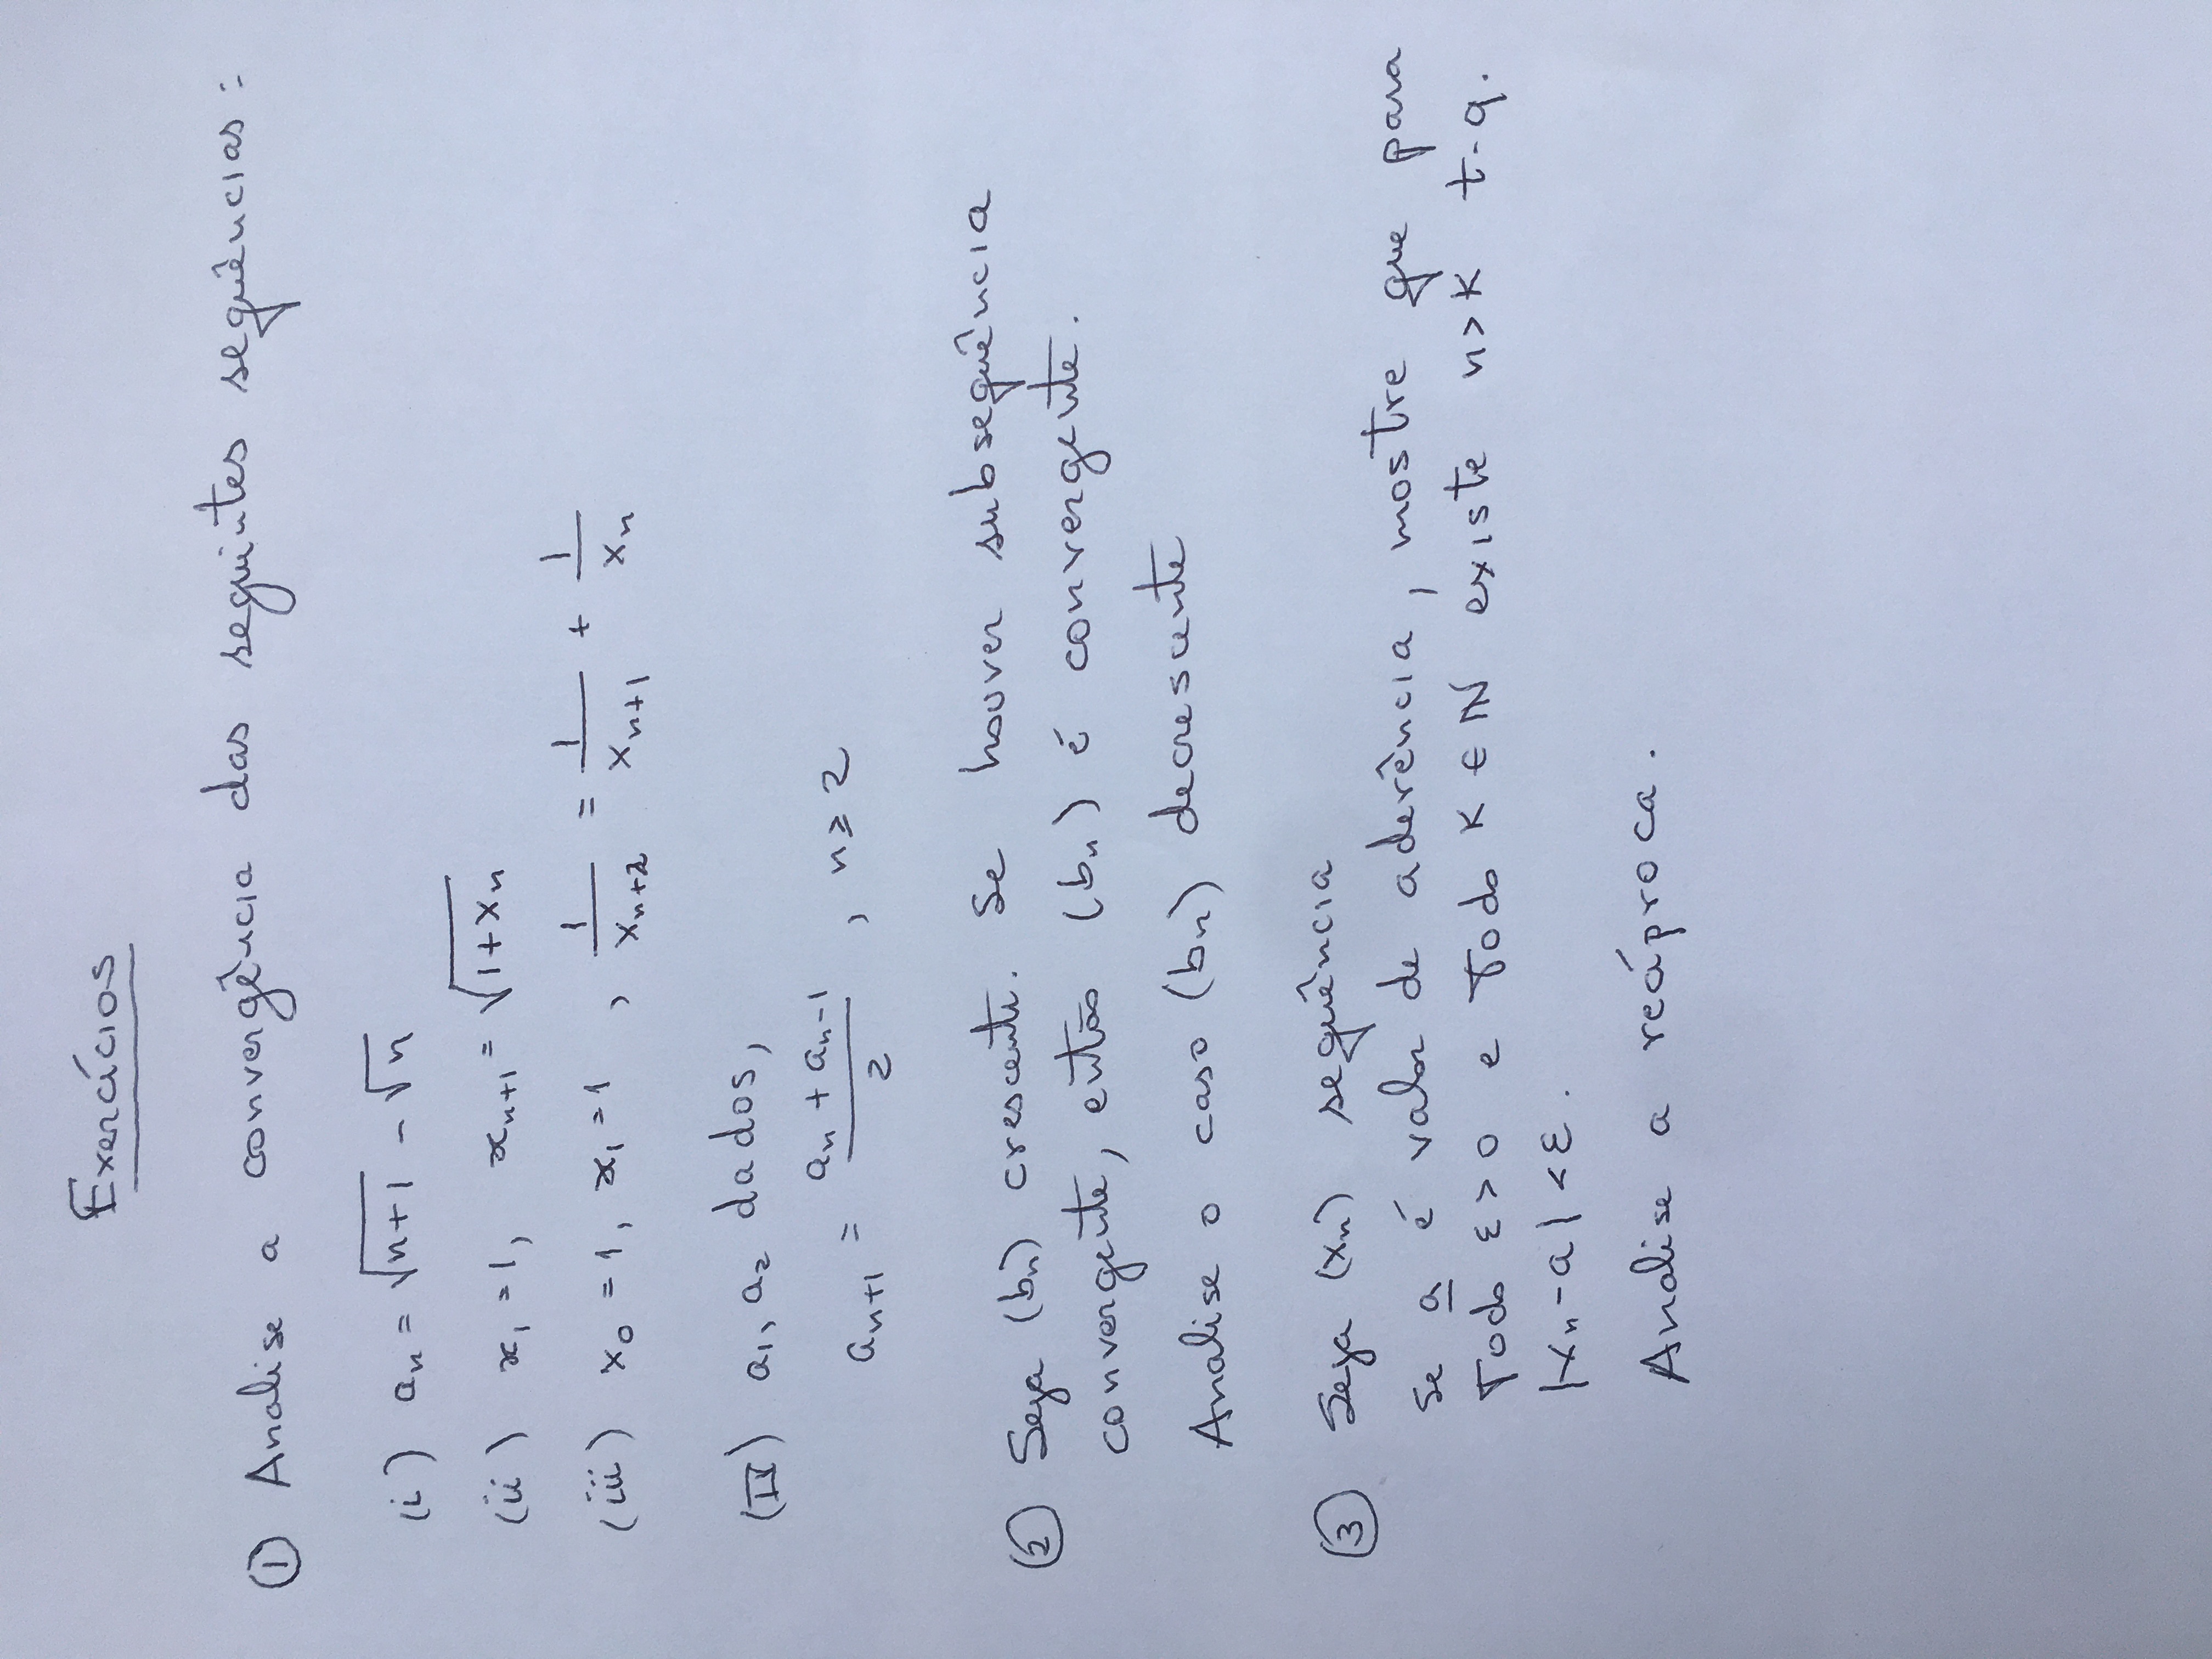 Exercícios
① Analise a convergência das seguintes sequências:
(i) aₙ = √(n+1) - √n
(ii) x₁ = 1, xₙ₊₁ = √(1+xₙ)
(iii) x₀ = 1, x₁ = 1, 1/xₙ₊₂ = 1/xₙ₊₁ + 1/xₙ
(IV) a₁, a₂ dados,
aₙ₊₁ = (aₙ + aₙ₋₁)/2, n ≥ 2
② Seja (bₙ) crescente. Se houver subsequência
convergente, então (bₙ) é convergente.
Analise o caso (bₙ) decrescente
③ Seja (xₙ) sequência
se a é valor de aderência, mostre que para
todo ε > 0 e todo K ∈ ℕ existe n > K t-q.
|xₙ - a| < ε.
Analise a recíproca.